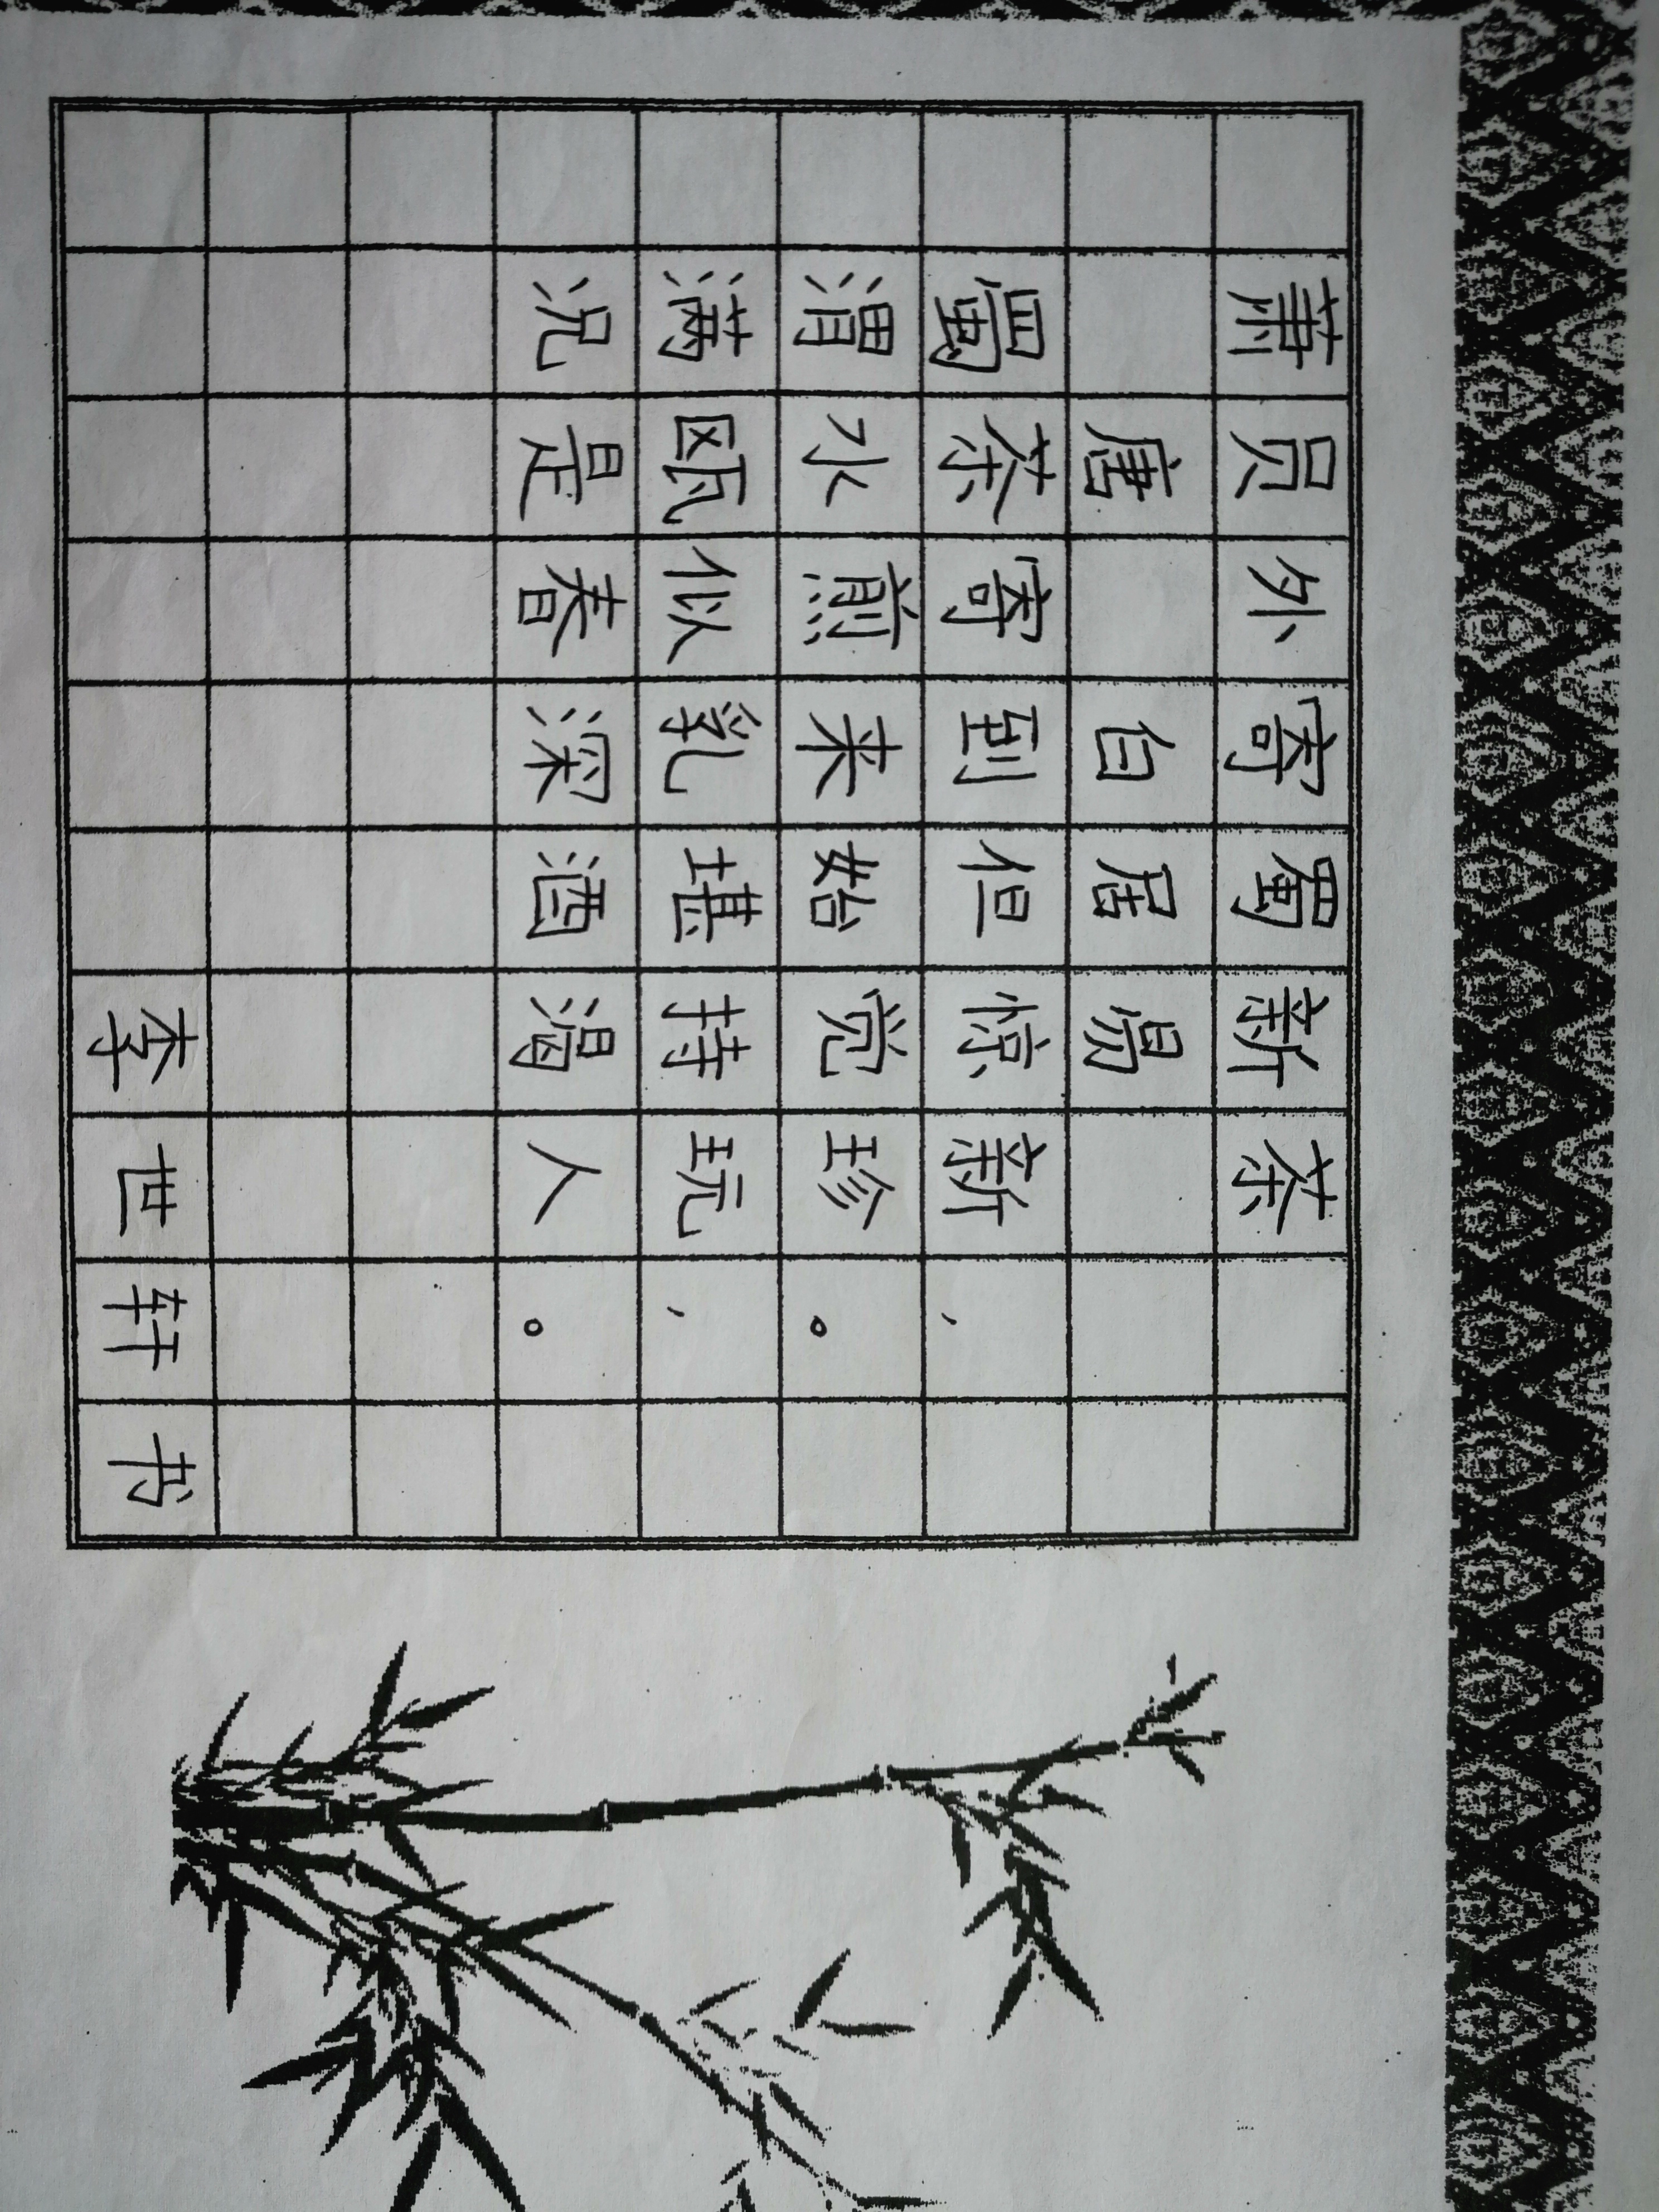 萧员外寄蜀新茶
唐 白居易
蜀茶寄到但惊新，
渭水煎来始觉珍。
满瓯似乳堪持玩，
况是春深酒渴人。
李世轩书